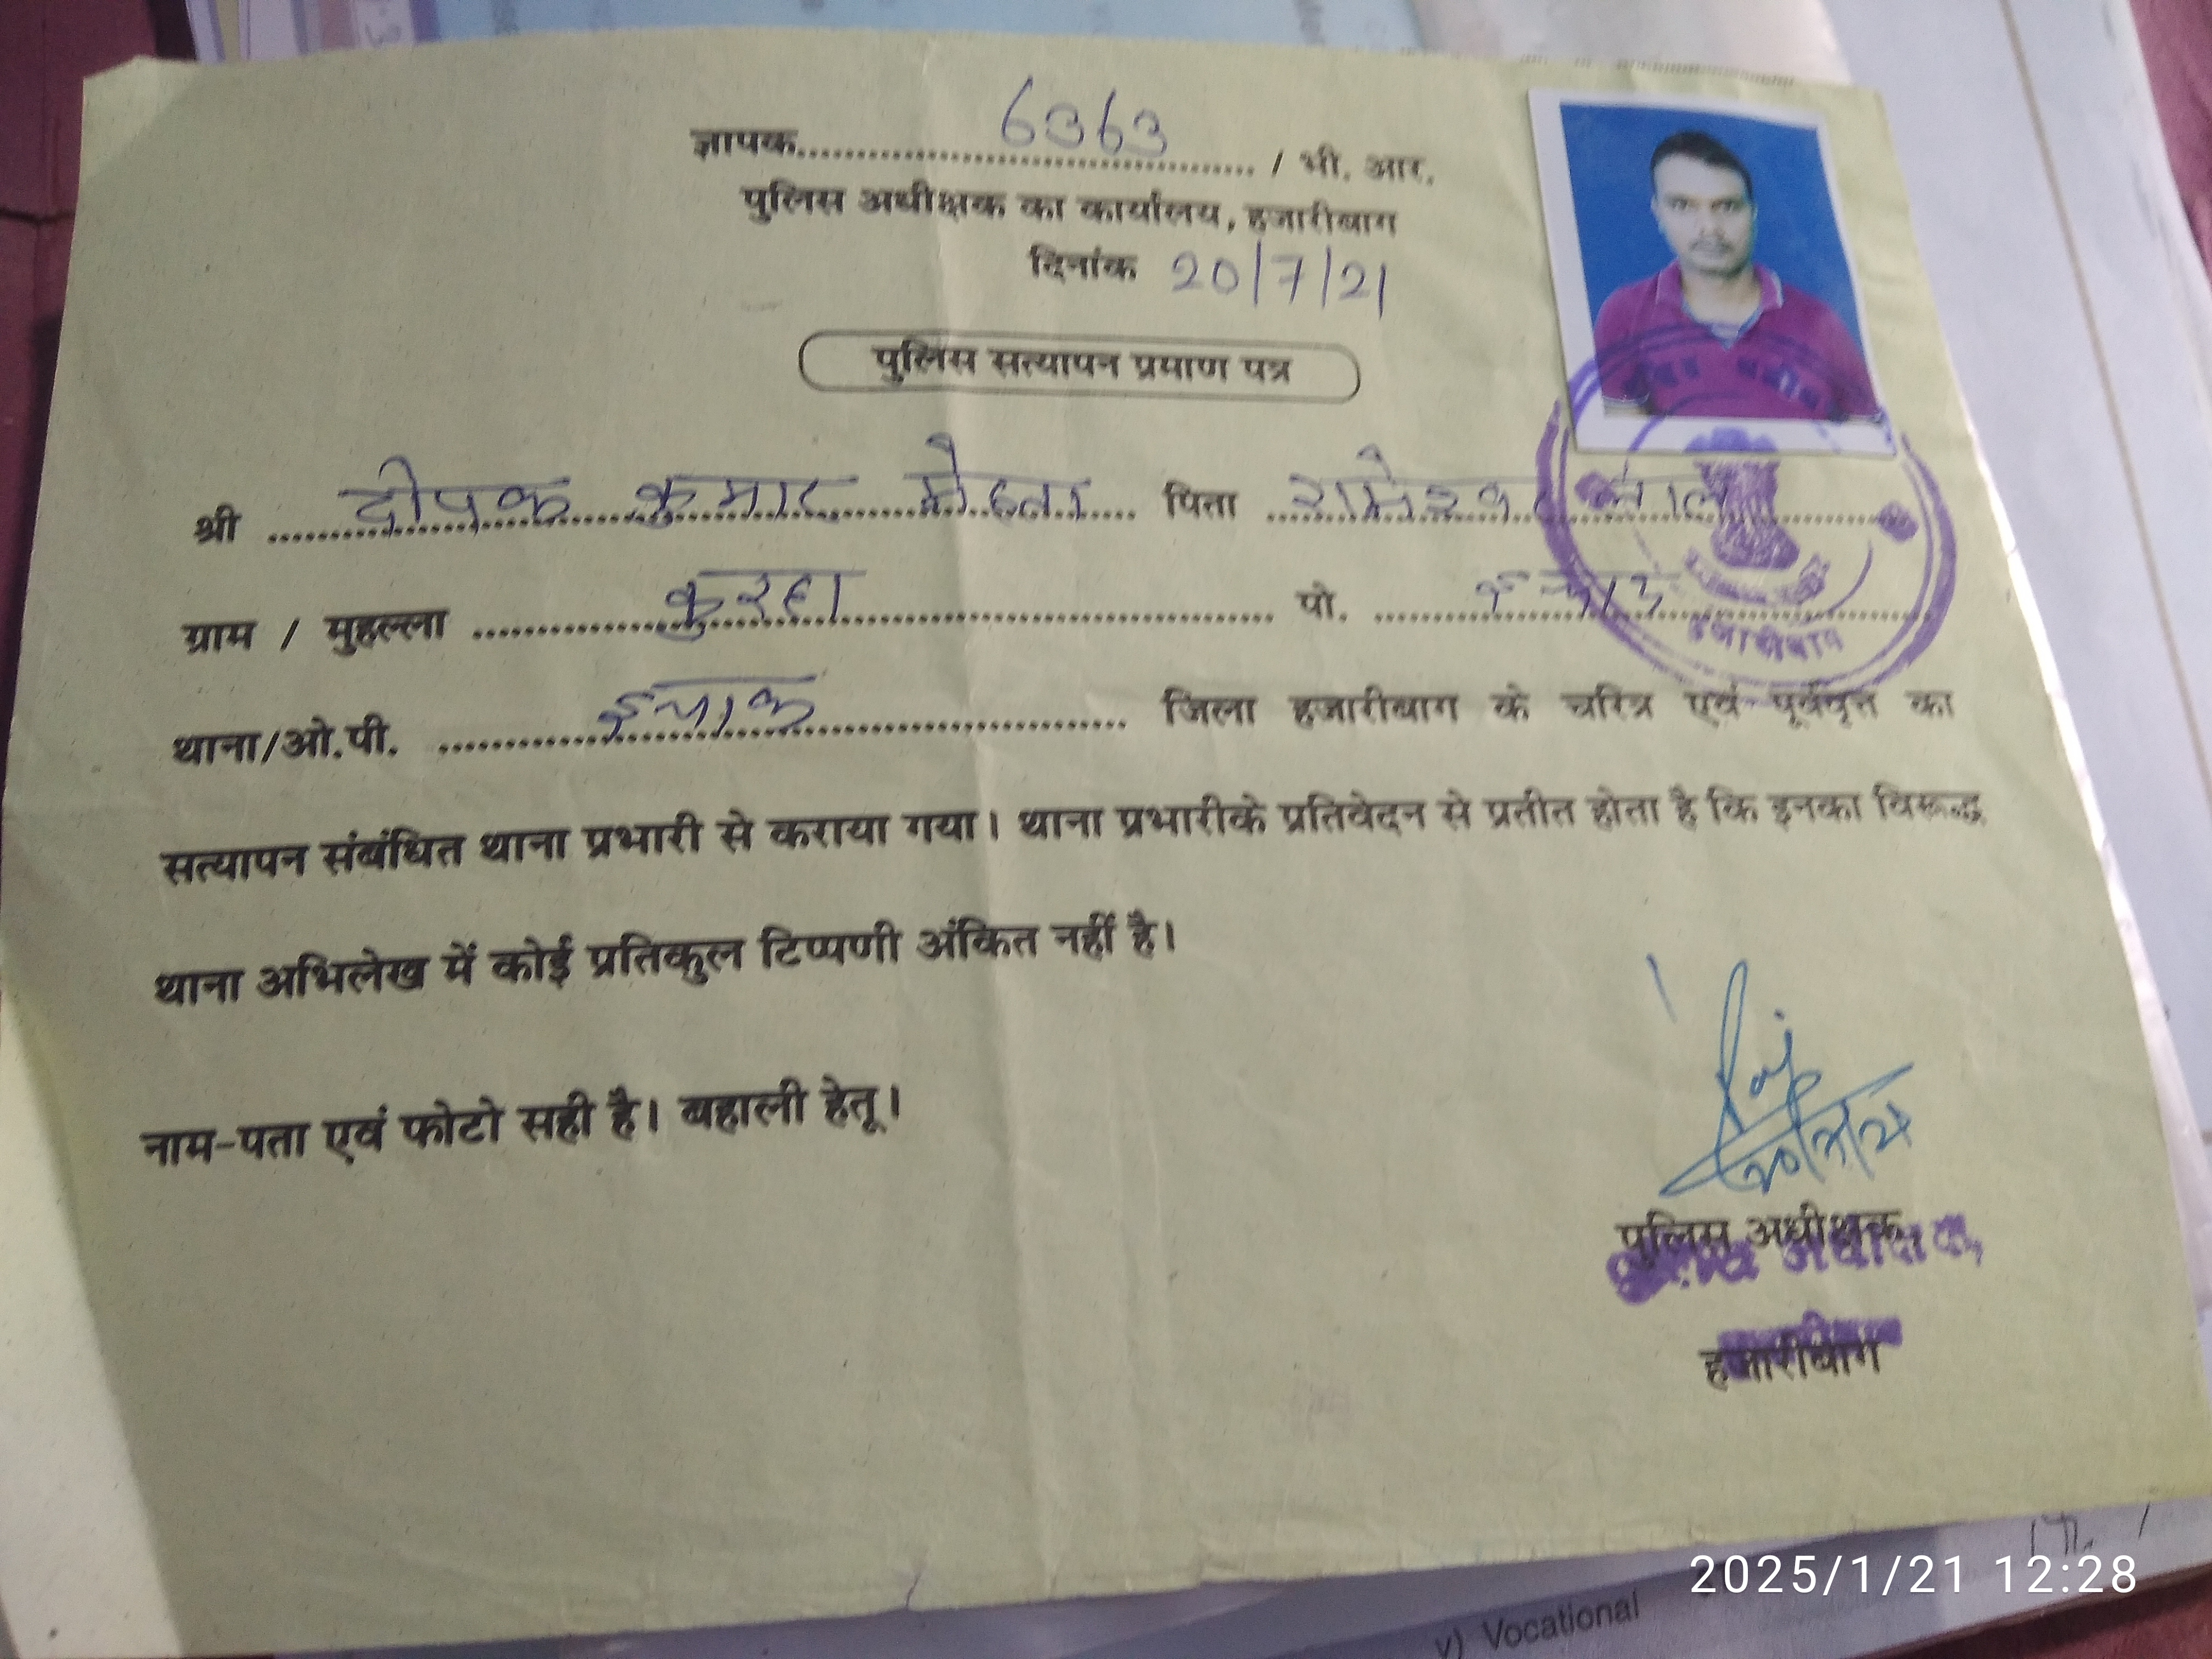 ज्ञापक 6363 / भी. आर.
पुलिस अधीक्षक का कार्यालय, हजारीबाग
दिनांक 20/7/21
पुलिस सत्यापन प्रमाण पत्र
श्री दीपक कुमार मेहता पिता रामेश्वर
ग्राम / मुहल्ला कुरहा पो.
थाना/ओ.पी. इचाक जिला हजारीबाग के चरित्र एवं पूर्ववृत्त का
सत्यापन संबंधित थाना प्रभारी से कराया गया। थाना प्रभारीके प्रतिवेदन से प्रतीत होता है कि इनका विरूद्ध
थाना अभिलेख में कोई प्रतिकुल टिप्पणी अंकित नहीं है।
नाम-पता एवं फोटो सही है। बहाली हेतू।
पुलिस अधीक्षक,
हजारीबाग
हजारीबाग
v) Vocational
2025/1/21 12:28